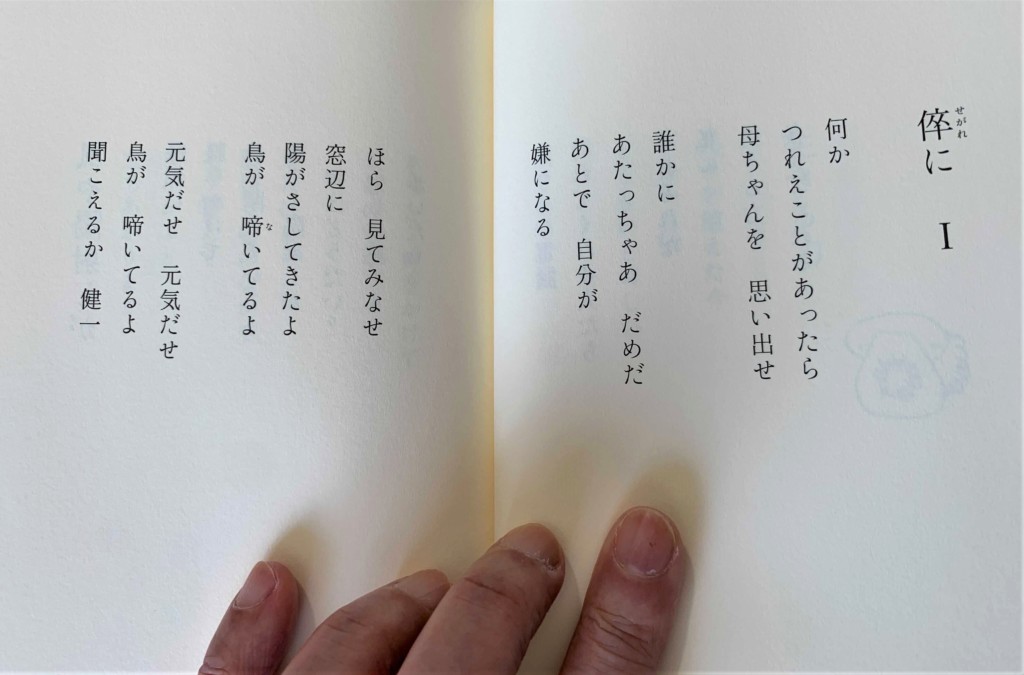 倅に Ⅰ
せがれ
何か
つれえことがあったら
母ちゃんを 思い出せ
誰かに
あたっちゃあ だめだ
あとで 自分が
嫌になる
ほら 見てみなせ
窓辺に
陽がさしてきたよ
鳥が 啼いてるよ
な
元気だせ 元気だせ
鳥が 啼いてるよ
聞こえるか 健一